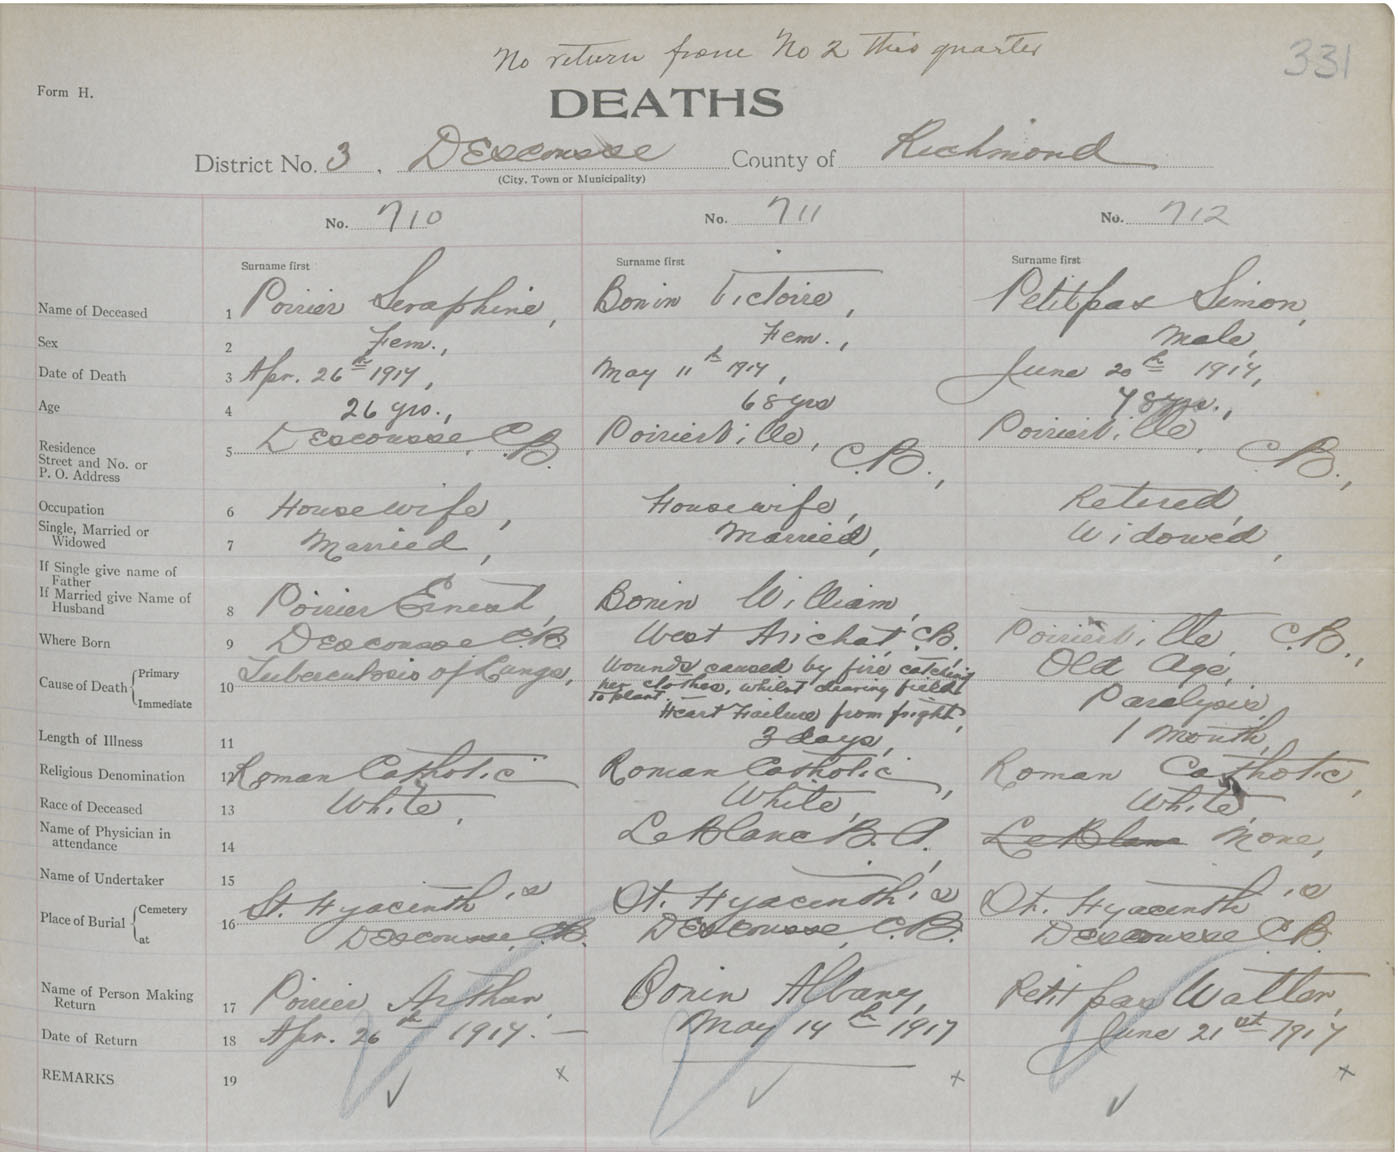 No return from No 2 this quarter
331
Form H.
DEATHS
District No. 3, Descousse County of Richmond
(City, Town or Municipality)
No. 710 No. 711 No. 712
Surname first Surname first Surname first
Name of Deceased 1 Poirier Seraphine, Bonin Victoire, Petitpas Simon,
Sex 2 Fem., Fem., Male,
Date of Death 3 Apr. 26th 1917, May 11th 1917, June 20th 1917,
Age 4 26 yrs., 68 yrs 78 yrs.,
Residence
Street and No. or
P. O. Address 5 Descousse, C.B. Poirierville, C.B., Poirierville, C.B.,
Occupation 6 Housewife, Housewife, Retired,
Single, Married or
Widowed 7 Married, Married, Widowed,
If Single give name of
Father
If Married give Name of
Husband 8 Poirier Ernest, Bonin William,
Where Born 9 Descousse C.B. West Arichat, C.B. Poirierville, C.B.,
Cause of Death { Primary 10 Tuberculosis of Lungs, Wounds caused by fire catching Old Age,
her clothes, whilst clearing field
to plant.
Immediate Heart Failure from fright, Paralysis,
Length of Illness 11 3 days, 1 month,
Religious Denomination 12 Roman Catholic Roman Catholic, Roman Catholic,
Race of Deceased 13 White, White, White,
Name of Physician in
attendance 14 LeBlanc B. A., LeBlanc None,
Name of Undertaker 15
Place of Burial { Cemetery 16 St. Hyacinth's St. Hyacinth's St. Hyacinth's
at Descousse, C.B. Descousse, C.B. Descousse C.B.
Name of Person Making
Return 17 Poirier Arthur, Bonin Albany, Petitpas Walter,
Date of Return 18 Apr. 26th 1917. — May 14th 1917 June 21st 1917
REMARKS 19 ✓ x ✓ x ✓ x